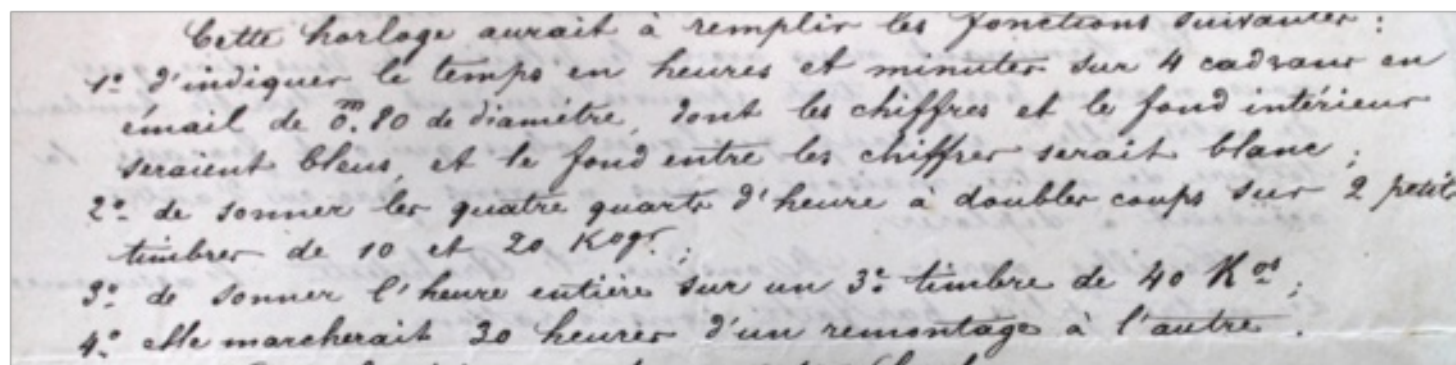 Cette horloge aurait à remplir les fonctions suivantes :
1º d'indiquer le temps en heures et minutes sur 4 cadrans en
émail de 0.m80 de diamètre, dont les chiffres et le fond intérieur
seraient bleus, et le fond entre les chiffres serait blanc ;
2º de sonner les quatre quarts d'heure à doubles coups sur 2 petits
timbres de 10 et 20 Kogr. ;
3º de sonner l'heure entière sur un 3e timbre de 40 Kos ;
4º elle marcherait 30 heures d'un remontage à l'autre.